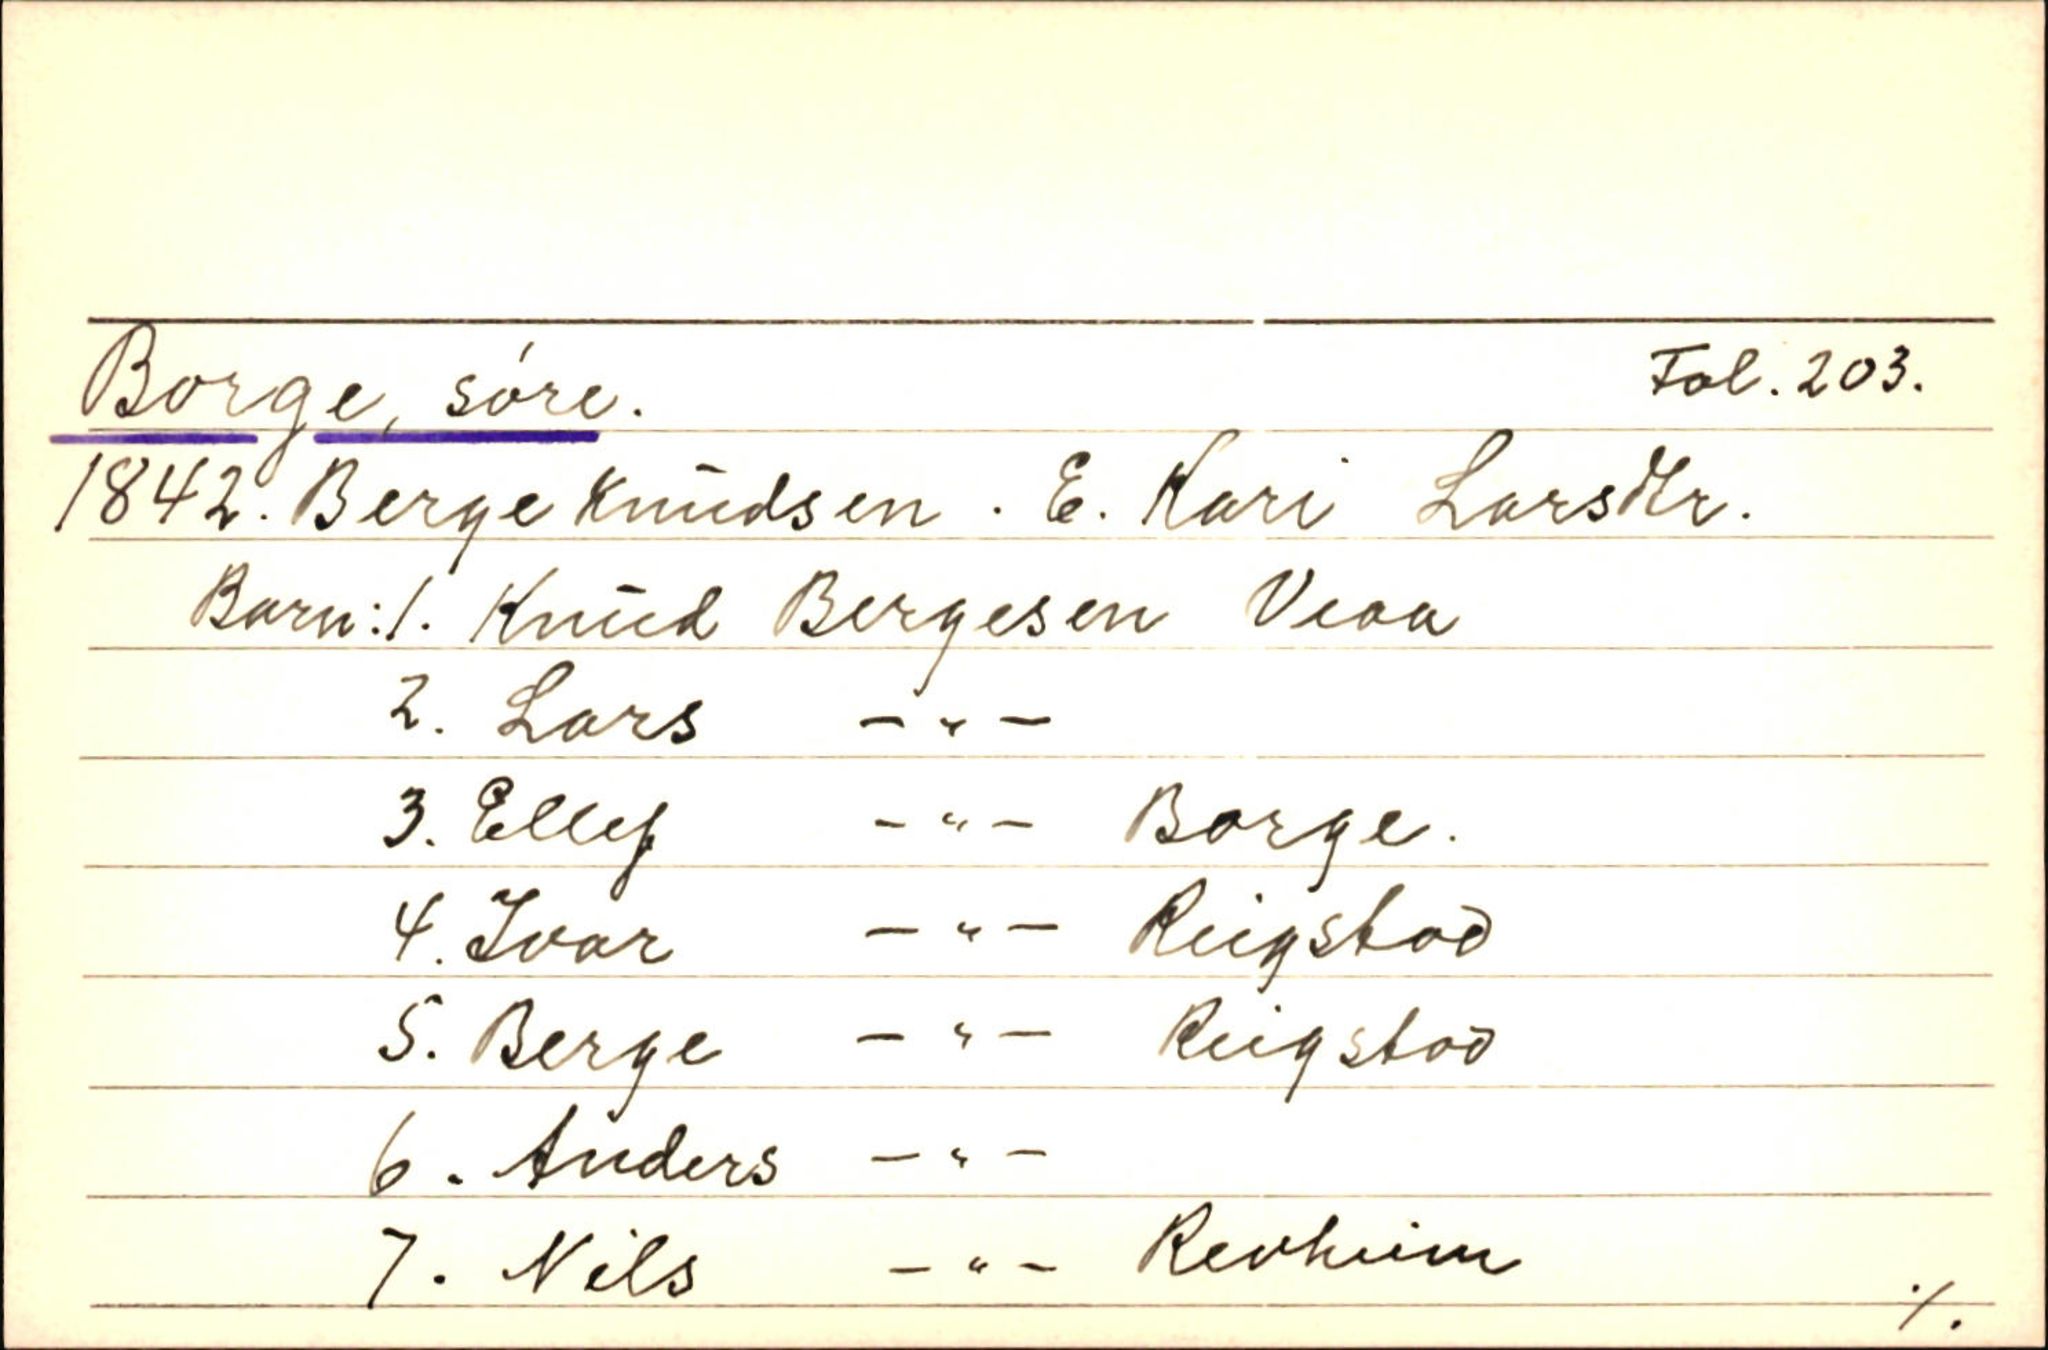 Borge, söre. Fol. 203.
1842. Berge Knudsen. E. Kari Larsdtr.
Barn: 1. Knud Bergesen Veaa
2. Lars -"-
3. Ellef -"- Borge.
4. Ivar -"- Reigstad
5. Berge -"- Reigstad
6. Anders -"-
7. Nils -"- Revheim
./.